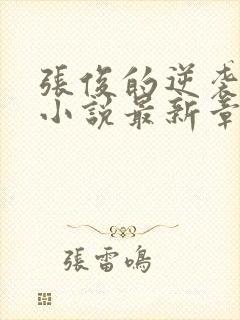 張俊的逆袭
小說最新章
張雷鳴